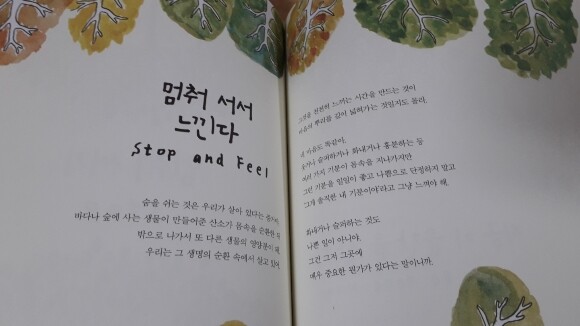 멈춰 서서
느낀다
Stop and Feel
숨을 쉬는 것은 우리가 살아 있다는 증거야.
바다나 숲에 사는 생물이 만들어준 산소가 몸속을 순환한 뒤
밖으로 나가서 또 다른 생물의 영양분이 돼.
우리는 그 생명의 순환 속에서 살고 있어.
그것을 천천히 느끼는 시간을 만드는 것이
마음의 뿌리를 깊이 넓혀가는 것일지도 몰라.
내 마음도 똑같아.
웃거나 슬퍼하거나 화내거나 흥분하는 등
여러 가지 기분이 몸속을 지나가지만
그런 기분을 일일이 좋고 나쁨으로 단정하지 말고
그게 솔직한 내 기분이야'라고 그냥 느껴야 해.
화내거나 슬퍼하는 것도
나쁜 일이 아니야.
그건 그저 그곳에
매우 중요한 뭔가가 있다는 말이니까.